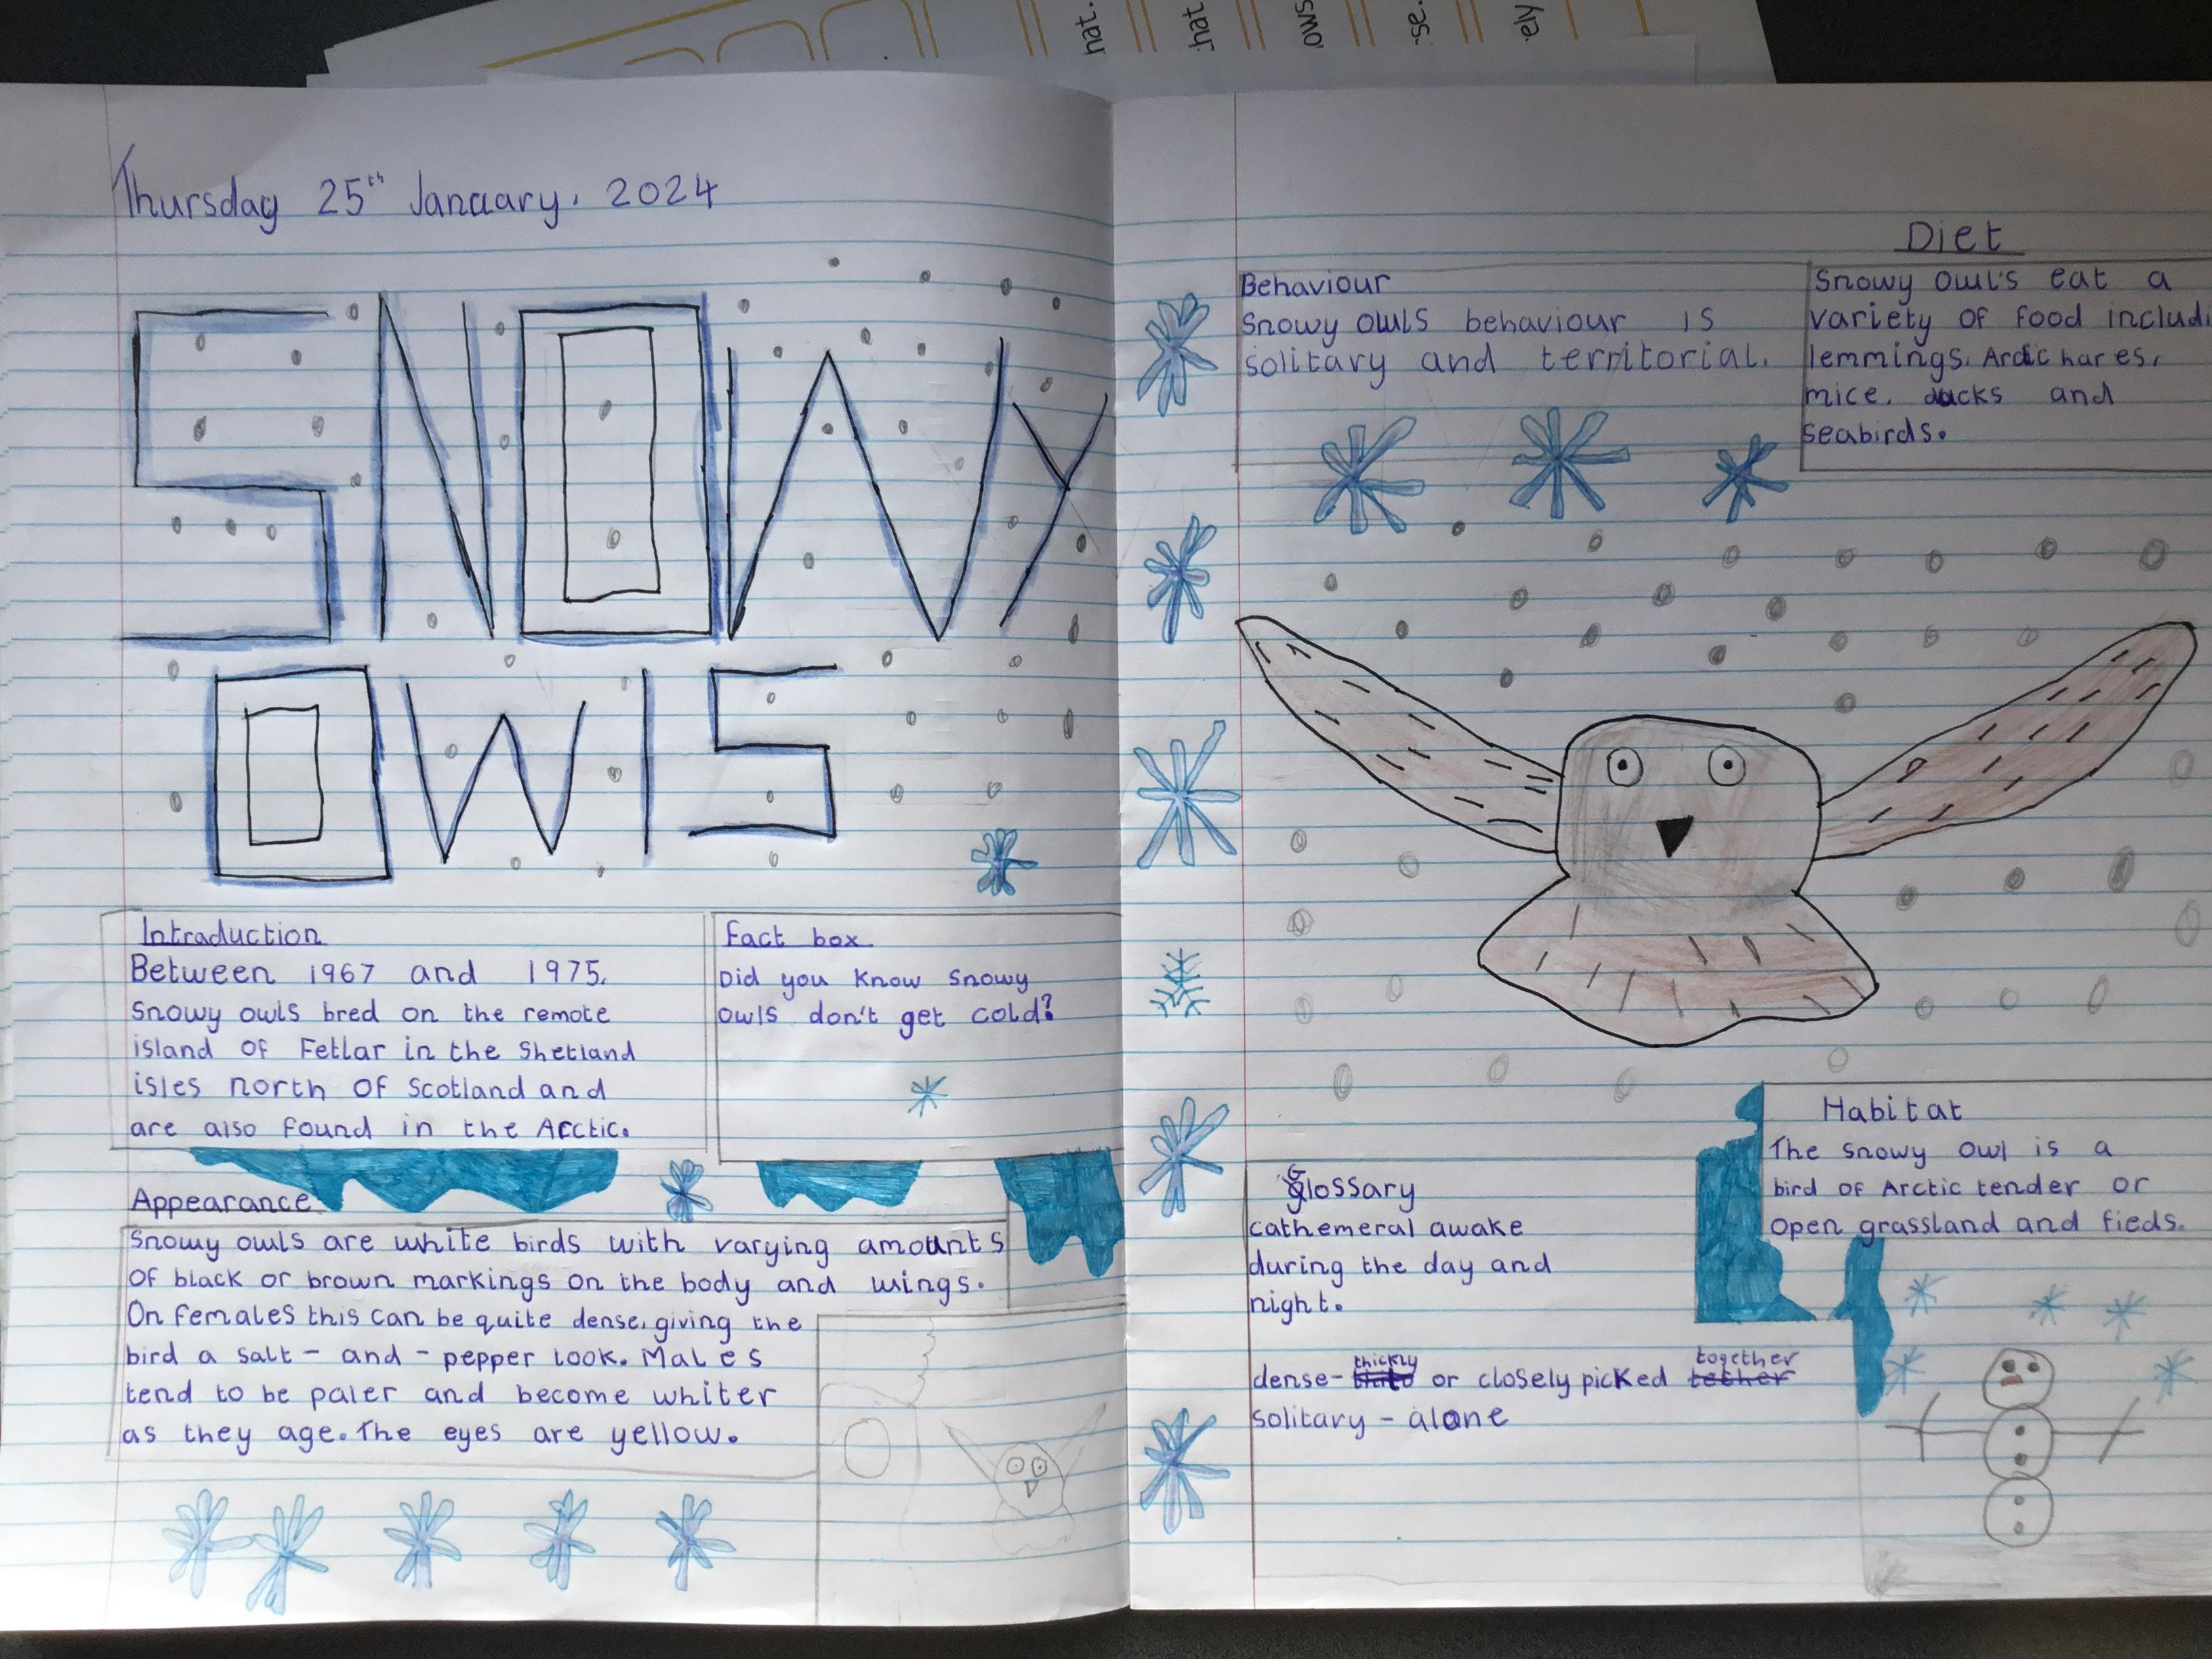 hat.
hat
ows
se.
ely
Thursday 25th January, 2024
SNOWY
OWlS
Intraduction
Between 1967 and 1975,
Snowy owls bred on the remote
island of Fetlar in the Shetland
isles north of Scotland and
are also found in the Arctic.
Fact box
Did you know Snowy
owls don't get cold?
Appearance
Snowy owls are white birds with varying amounts
of black or brown markings on the body and wings.
On females this can be quite dense, giving the
bird a salt - and - pepper look. Males
tend to be paler and become whiter
as they age. The eyes are yellow.
Behaviour
Snowy owls behaviour is
solitary and territorial.
Diet
Snowy owl's eat a
variety of food includi
lemmings, Arctic hares,
mice, ducks and
seabirds.
Habitat
The snowy owl is a
bird of Arctic tender or
open grassland and fieds.
Glossary
cathemeral awake
during the day and
night.
dense- thickly or closely picked together tether
solitary - alone